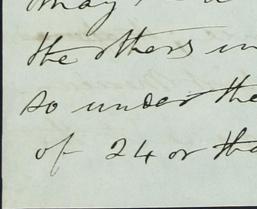 may
the others in
so under the
of 24 or tha